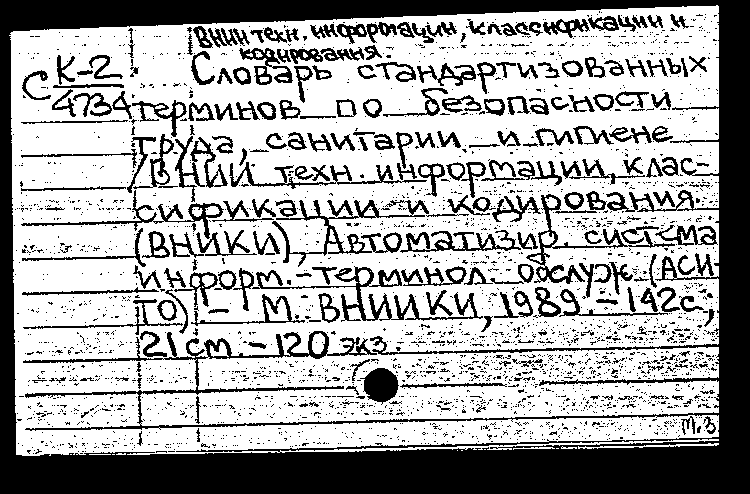 ВНИИ техн. информации, классификации и
кодирования.
С К-2
4734
Словарь стандартизованных
терминов по безопасности
труда, санитарии и гигиене
/ВНИИ техн. информации, клас-
сификации и кодирования
(ВНИКИ), Автоматизир. система
информ.-терминол. обслуж. (АСИ-
ТО) – М.: ВНИИКИ, 1989. – 142с.;
21 см. – 120 экз.
м.3